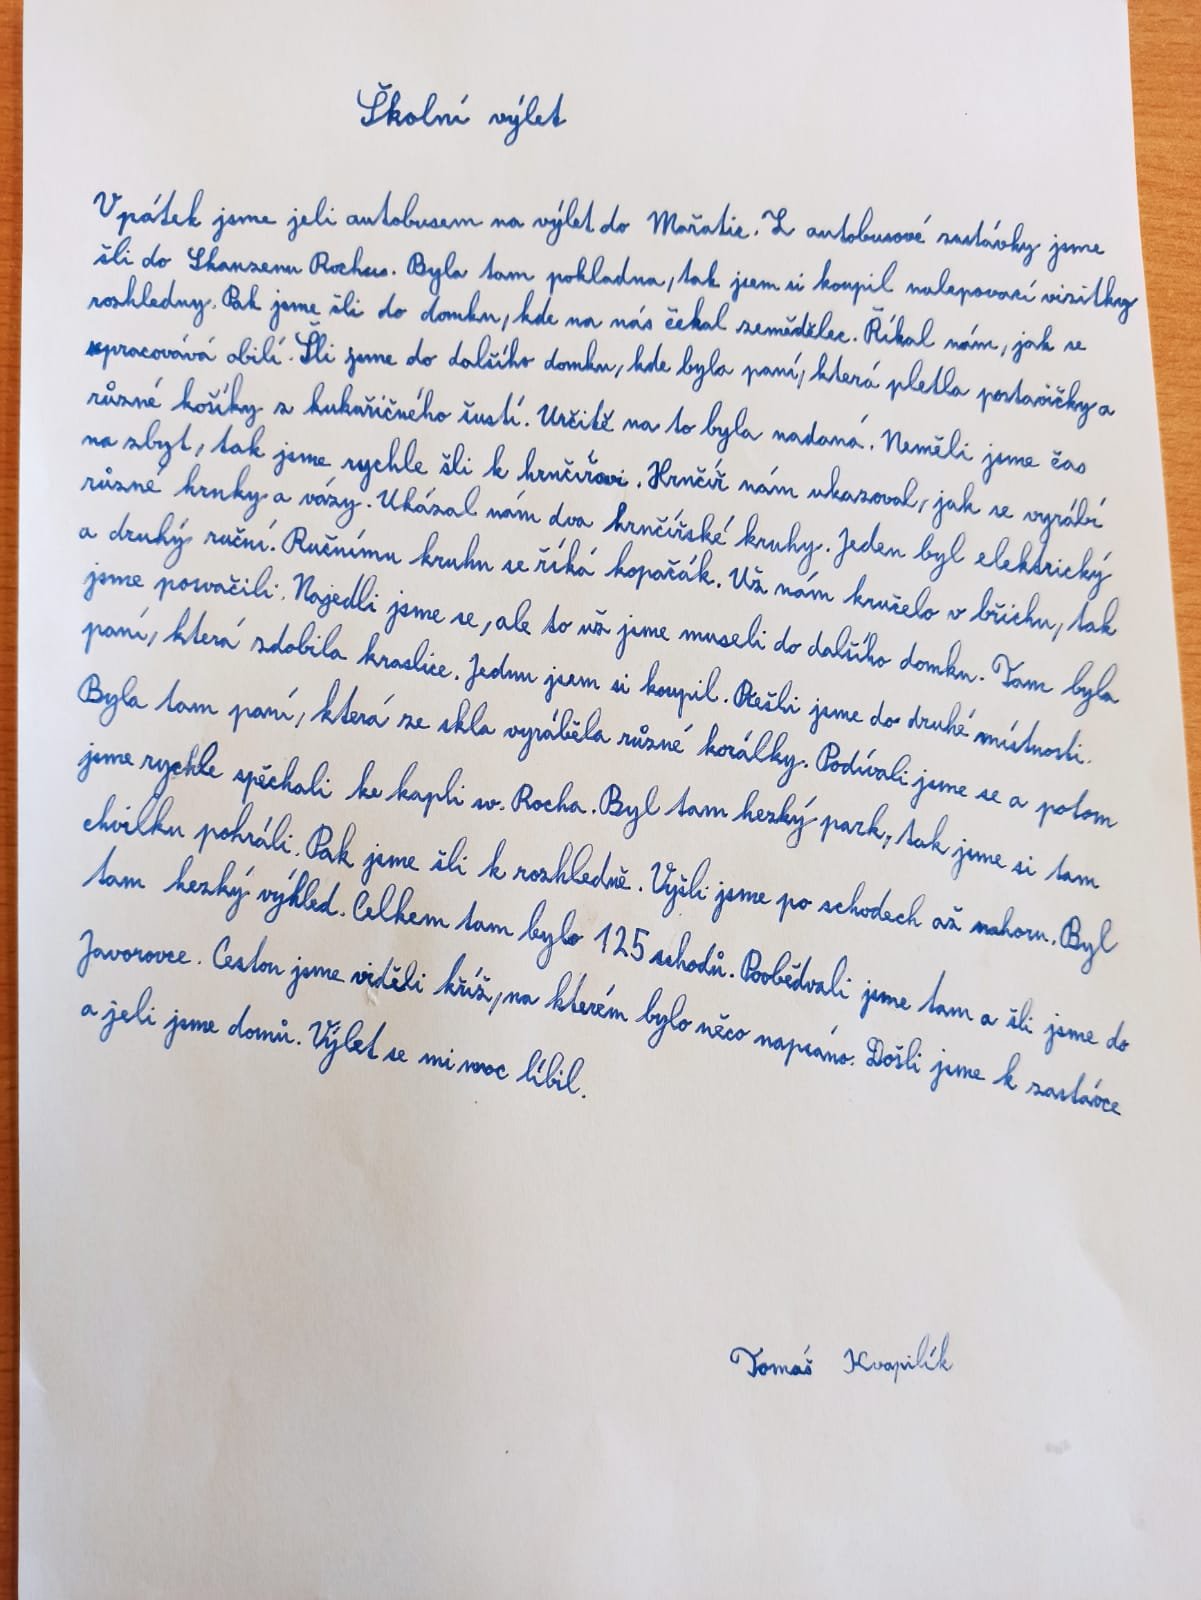 Školní výlet
V pátek jsme jeli autobusem na výlet do Mařatic. Z autobusové zastávky jsme
šli do Skanzenu Rochus. Byla tam pokladna, tak jsem si koupil nalepovací vizitky
rozhledny. Pak jsme šli do domku, kde na nás čekal zemědělec. Říkal nám, jak se
zpracovává obilí. Šli jsme do dalšího domku, kde byla paní, která pletla postavičky a
různé košíky z kukuřičného šustí. Určitě na to byla nadaná. Neměli jsme čas
na zbyt, tak jsme rychle šli k hrnčířovi. Hrnčíř nám ukazoval, jak se vyrábí
různé hrnky a vázy. Ukázal nám dva hrnčířské kruhy. Jeden byl elektrický
a druhý ruční. Ručnímu kruhu se říká kopačák. Už nám kručelo v břichu, tak
jsme posvačili. Najedli jsme se, ale to už jsme museli do dalšího domku. Tam byla
paní, která zdobila kraslice. Jednu jsem si koupil. Přešli jsme do druhé místnosti.
Byla tam paní, která ze skla vyráběla různé korálky. Podívali jsme se a potom
jsme rychle spěchali ke kapli sv. Rocha. Byl tam hezký park, tak jsme si tam
chvilku pohráli. Pak jsme šli k rozhledně. Vyšli jsme po schodech až nahoru. Byl
tam hezký výhled. Celkem tam bylo 125 schodů. Poobědvali jsme tam a šli jsme do
Javorovce. Cestou jsme viděli kříž, na kterém bylo něco napsáno. Došli jsme k zastávce
a jeli jsme domů. Výlet se mi moc líbil.
Tomáš Kvapilík